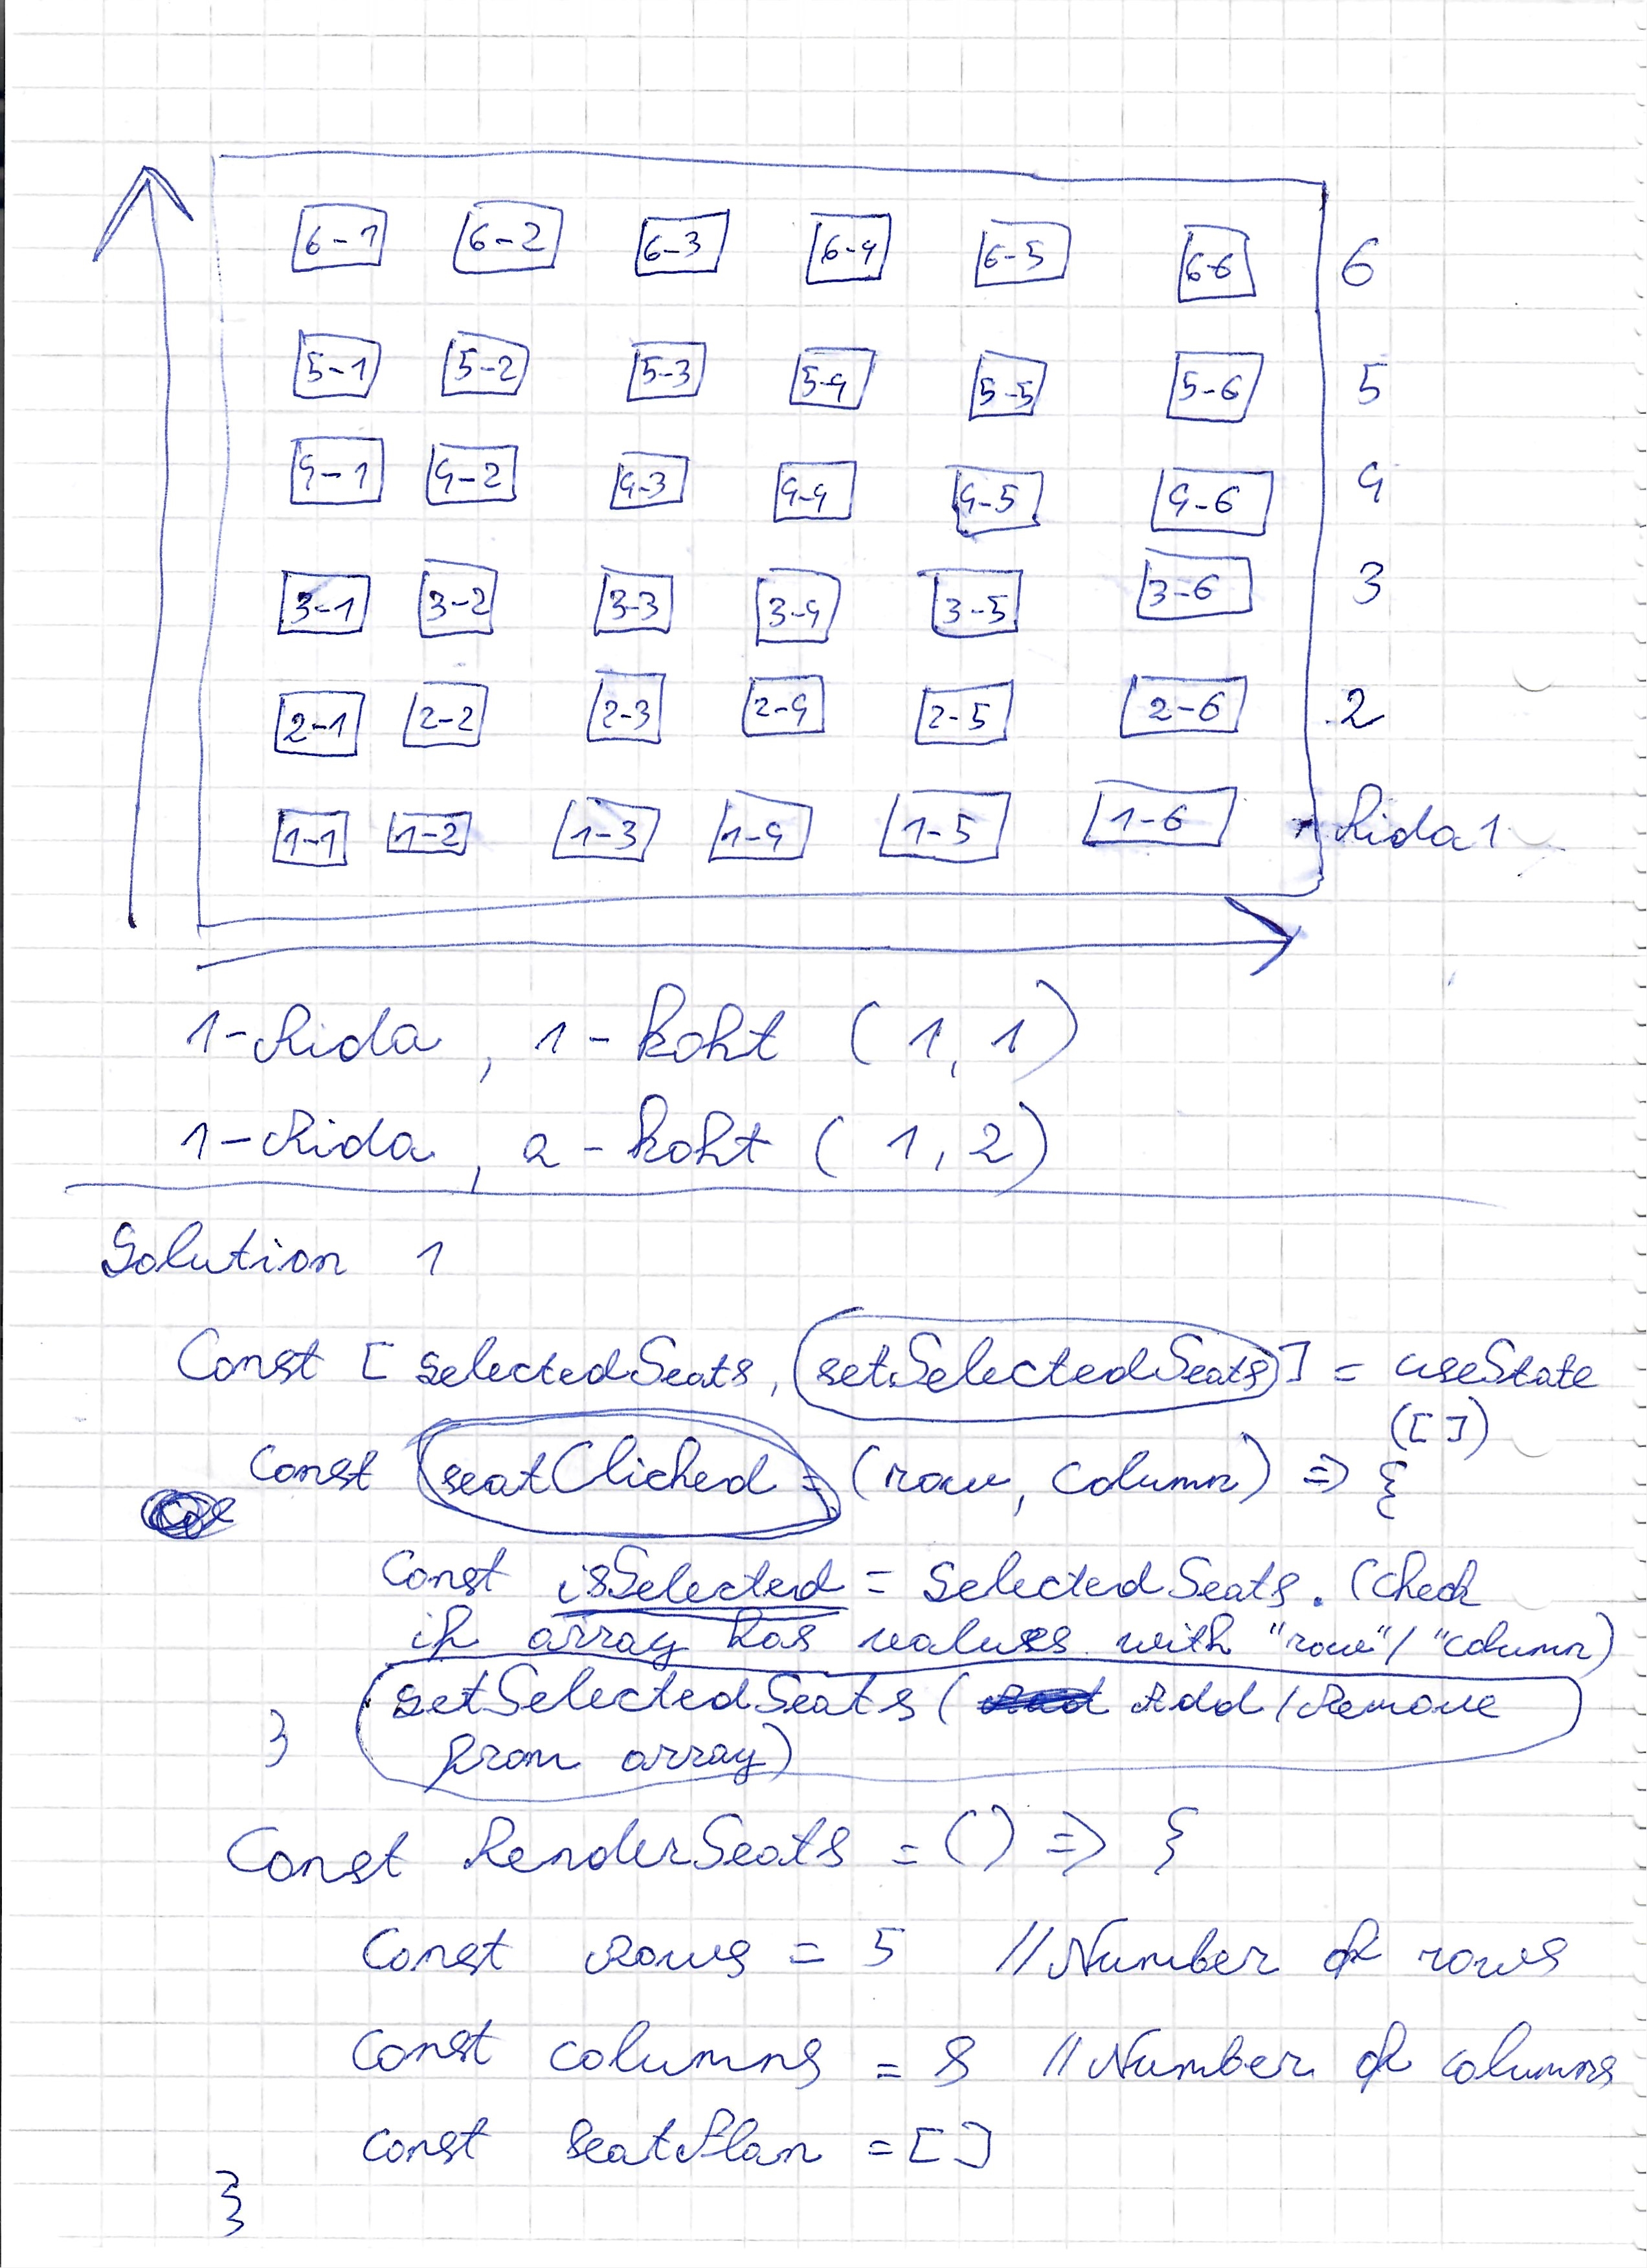 6-1 6-2 6-3 6-4 6-5 6-6 6
5-1 5-2 5-3 5-4 5-5 5-6 5
4-1 4-2 4-3 4-4 4-5 4-6 4
3-1 3-2 3-3 3-4 3-5 3-6 3
2-1 2-2 2-3 2-4 2-5 2-6 2
1-1 1-2 1-3 1-4 1-5 1-6 Rida 1
1-Rida, 1-koht (1,1)
1-Rida, 2-koht (1,2)
Solution 1
Const [selectedSeats, setSelectedSeats] = useState
([])
Const seatClicked = (row, column) => {
Const isSelected = selectedSeats. (Check
if array has values with "row"/"column)
setSelectedSeats ( Add/Remove
} from array)
Const RenderSeats = () => {
Const Rows = 5 //Number of rows
Const columns = 8 //Number of columns
const seatPlan = []
}